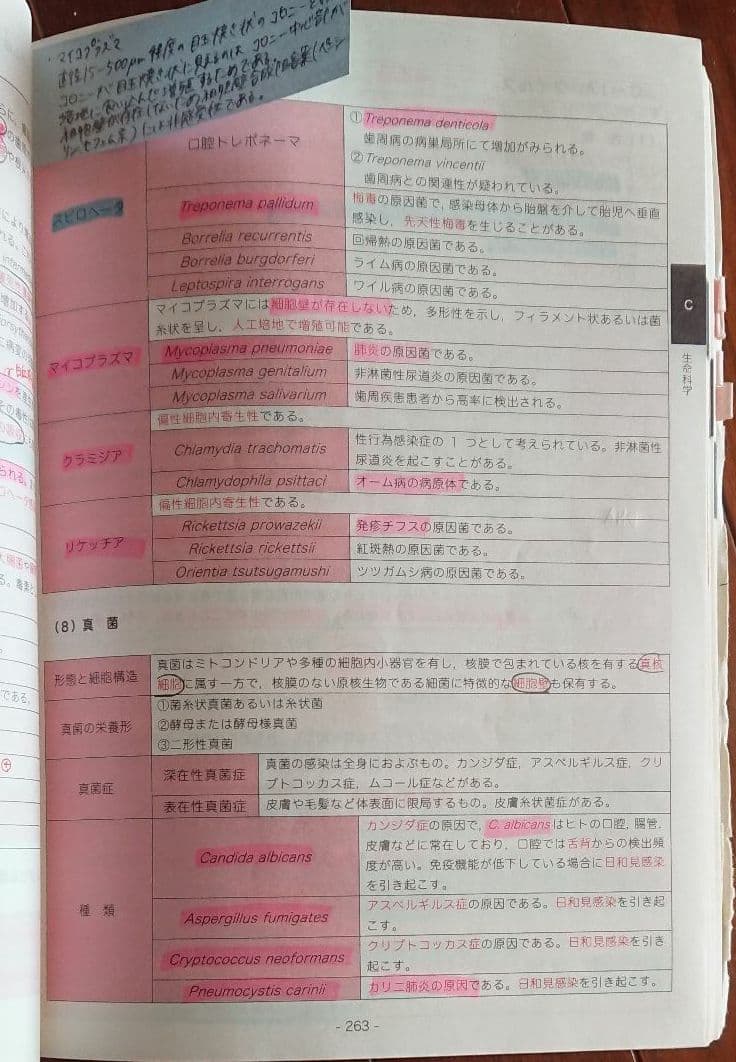 ・マイコプラズマ
直径15~500μm程度の目玉焼き状のコロニー
コロニーが目玉焼き状に見えるのはコロニー中心部が
培地に食い込んで増殖するためである。
細胞壁が存在しないため細胞壁合成阻害薬(ペニシ
リン、セフェム系)には非感受性である。
口腔トレポネーマ
① Treponema denticola
歯周病の病巣局所にて増加がみられる。
② Treponema vincentii
歯周病との関連性が疑われている。
スピロヘータ
Treponema pallidum
梅毒の原因菌で,感染母体から胎盤を介して胎児へ垂直
感染し,先天性梅毒を生じることがある。
Borrelia recurrentis
回帰熱の原因菌である。
Borrelia burgdorferi
ライム病の原因菌である。
Leptospira interrogans
ワイル病の原因菌である。
マイコプラズマには細胞壁が存在しないため,多形性を示し,フィラメント状あるいは菌
糸状を呈し,人工培地で増殖可能である。
マイコプラズマ
Mycoplasma pneumoniae
肺炎の原因菌である。
Mycoplasma genitalium
非淋菌性尿道炎の原因菌である。
Mycoplasma salivarium
歯周疾患患者から高率に検出される。
偏性細胞内寄生性である。
クラミジア
Chlamydia trachomatis
性行為感染症の1つとして考えられている。非淋菌性
尿道炎を起こすことがある。
Chlamydophila psittaci
オーム病の病原体である。
偏性細胞内寄生性である。
リケッチア
Rickettsia prowazekii
発疹チフスの原因菌である。
Rickettsia rickettsii
紅斑熱の原因菌である。
Orientia tsutsugamushi
ツツガムシ病の原因菌である。
C
生命科学
(8)真 菌
形態と細胞構造
真菌はミトコンドリアや多種の細胞内小器官を有し,核膜で包まれている核を有する真核
細胞に属す一方で,核膜のない原核生物である細菌に特徴的な細胞壁も保有する。
真菌の栄養形
①菌糸状真菌あるいは糸状菌
②酵母または酵母様真菌
③二形性真菌
真菌症
深在性真菌症
真菌の感染は全身におよぶもの。カンジダ症,アスペルギルス症,クリ
プトコッカス症,ムコール症などがある。
表在性真菌症
皮膚や毛髪など体表面に限局するもの。皮膚糸状菌症がある。
種 類
Candida albicans
カンジダ症の原因で,C. albicansはヒトの口腔,腸管,
皮膚などに常在しており,口腔では舌背からの検出頻
度が高い。免疫機能が低下している場合に日和見感染
を引き起こす。
Aspergillus fumigates
アスペルギルス症の原因である。日和見感染を引き起
こす。
Cryptococcus neoformans
クリプトコッカス症の原因である。日和見感染を引き
起こす。
Pneumocystis carinii
カリニ肺炎の原因である。日和見感染を引き起こす。
- 263 -